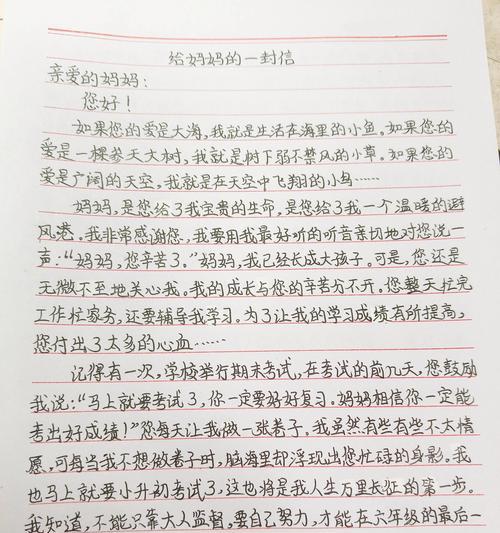 给妈妈的一封信
亲爱的妈妈：
您好！
如果您的爱是大海，我就是生活在海里的小鱼。如果您的
爱是一棵参天大树，我就是树下弱不禁风的小草。如果您的
爱是广阔的天空，我就是在天空中飞翔的小鸟……
妈妈，是您给了我宝贵的生命，是您给了我一个温暖的避
风港。我非常感谢您，我要用我最好听的听音亲切地对您说一
声：“妈妈，您辛苦了。”妈妈，我已经长成大孩子。可是，您还是
无微不至地关心我。我的成长与您的辛苦分不开。您整天忙完
工作忙家务，还要辅导我学习。为了让我的学习成绩有所提高，
您付出了太多的心血……
记得有一次，学校举行期末考试，在考试的前几天，您鼓励
我说：“马上就要考试了，你一定要好好复习。妈妈相信你一定能
考出好成绩！”您每天让我做一张卷子。我虽然有些有些不太情
愿，可每当我不想做卷子时，脑海里却浮现出您忙碌的身影。我
也马上就要小升初考试了，这也将是我人生万里长征的第一步。
我知道，不能只靠大人监督，要自己努力，才能在六年级的最后一